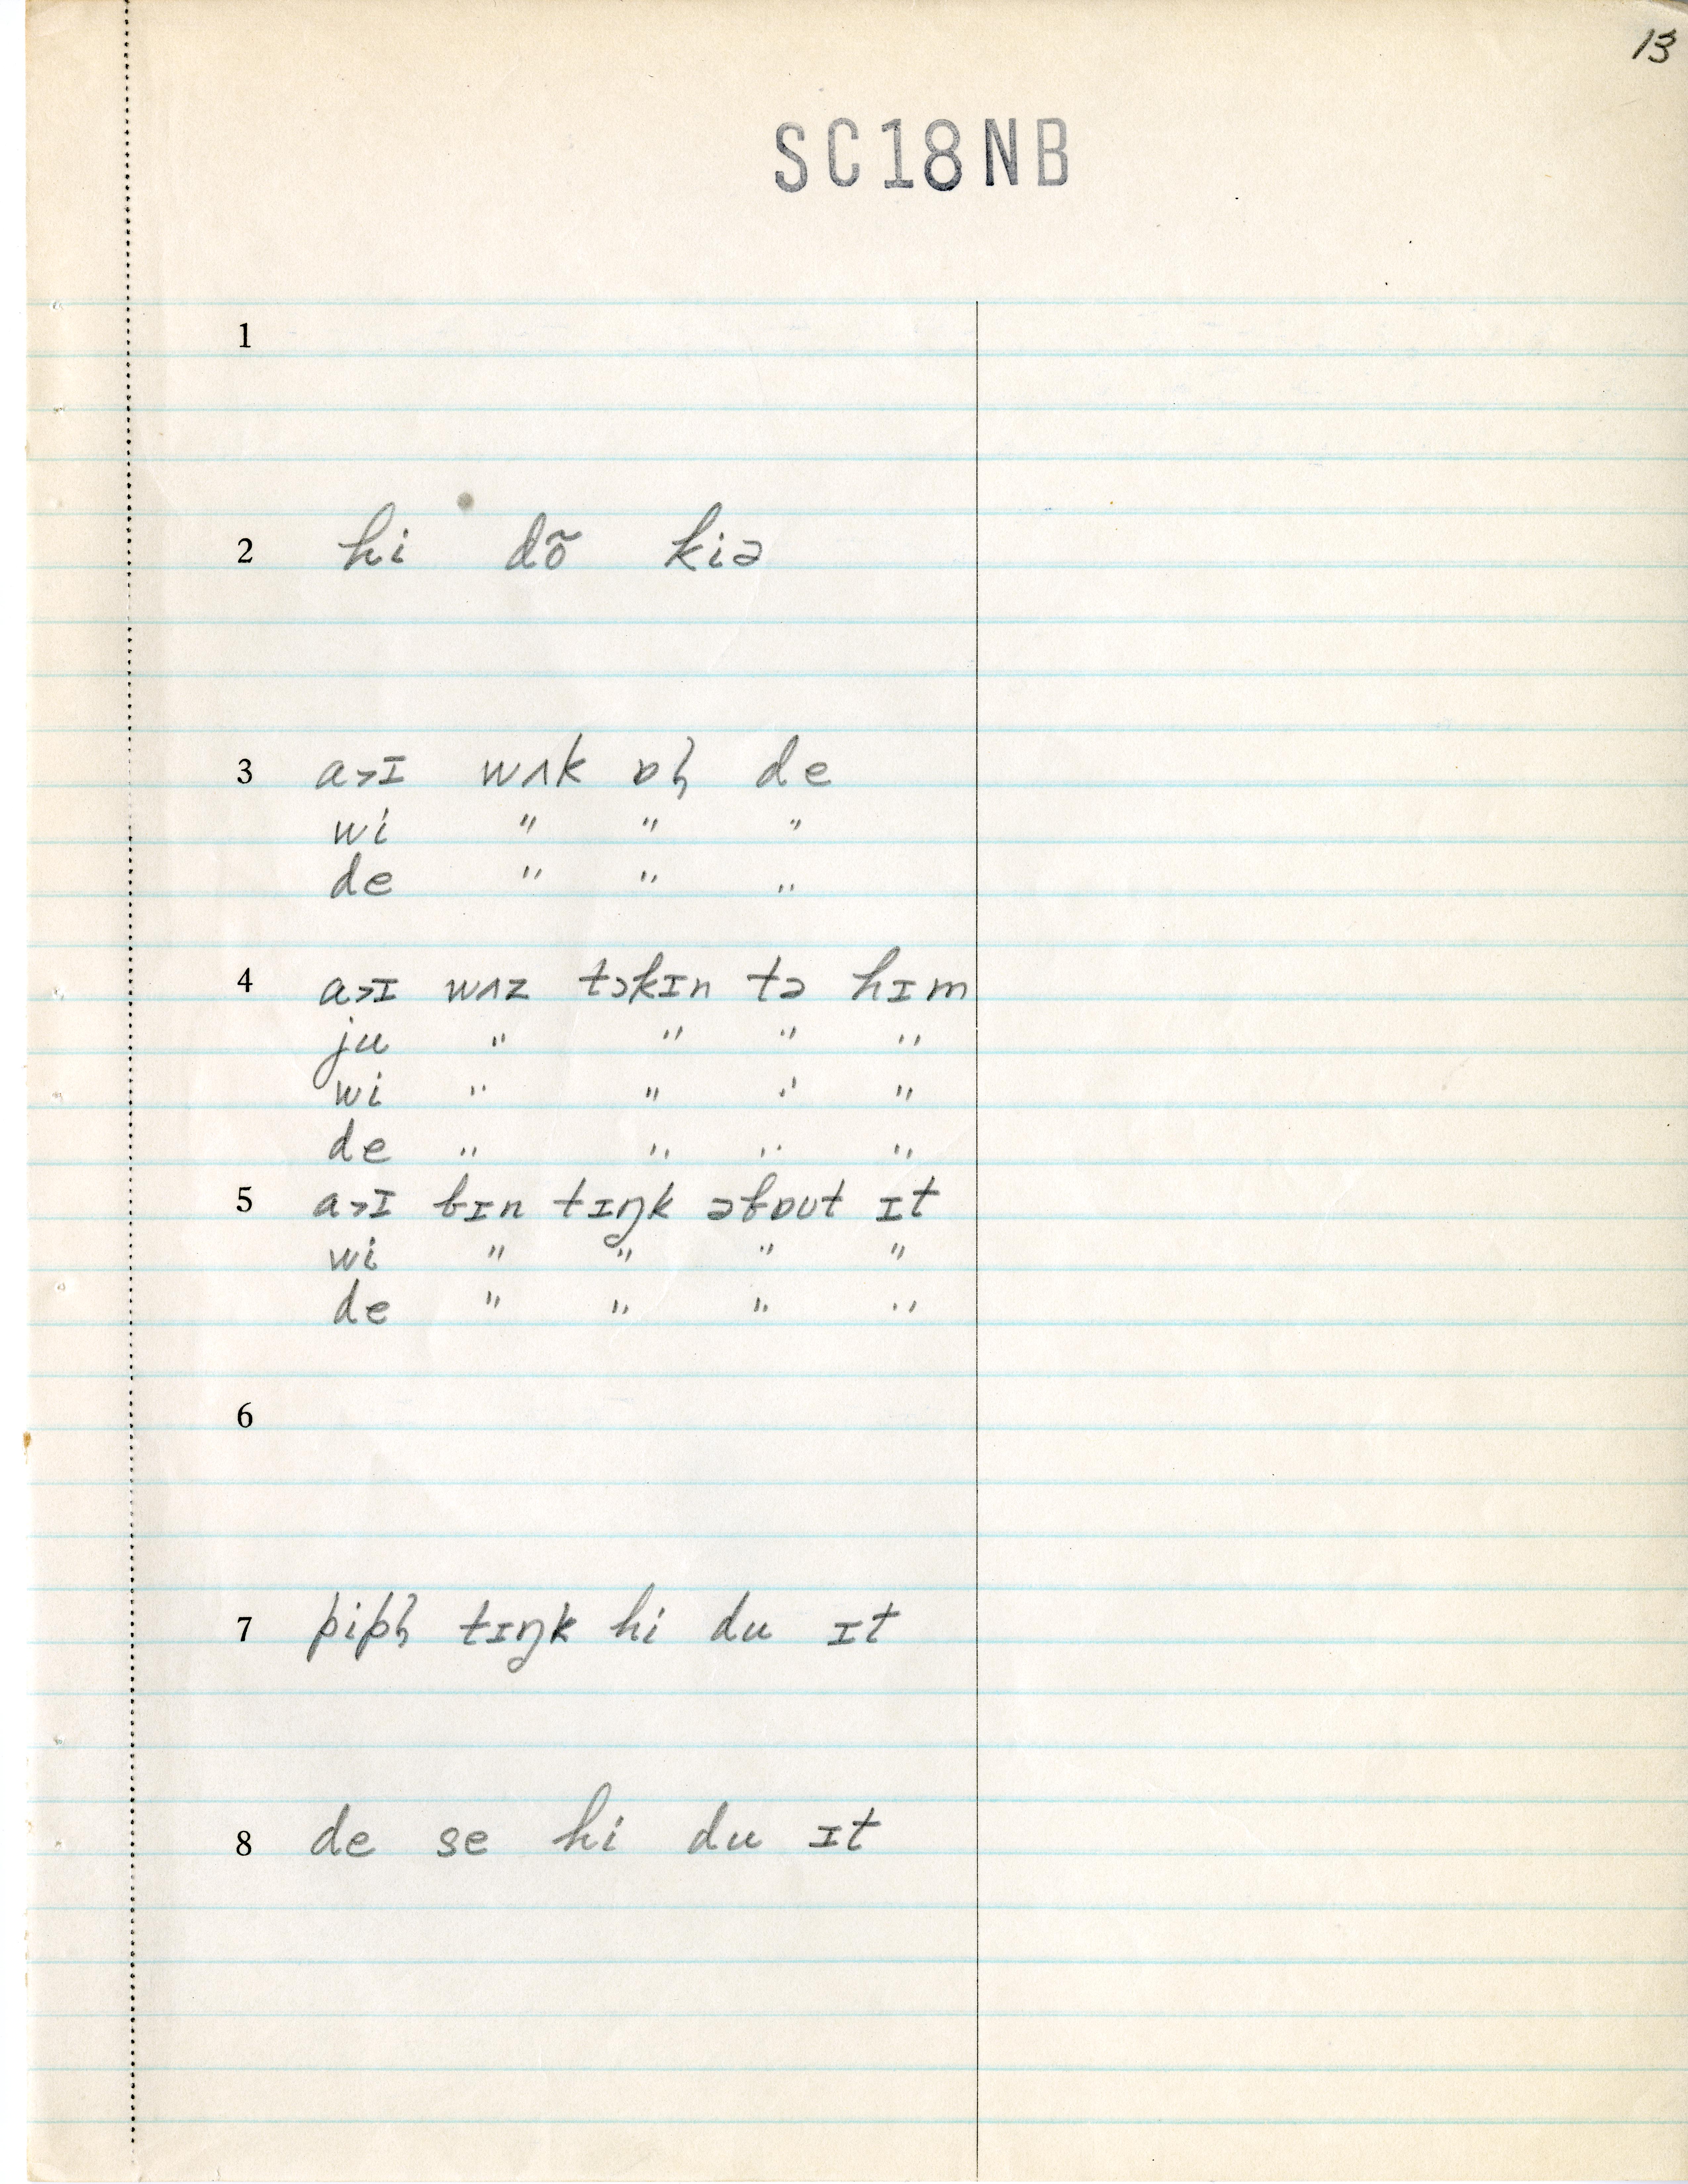 13
SC18NB
1
2 hi dõ kiə
3 a>ɪ wʌk ɒɫ de
wi " " "
de " " "
4 a>ɪ wʌz tɔkɪn tə hɪm
ju " " " "
wi " " " "
de " " " "
5 a>ɪ bɪn tɪŋk əbɒut ɪt
wi " " " "
de " " " "
6
7 pipɫ tɪŋk hi du ɪt
8 de se hi du ɪt